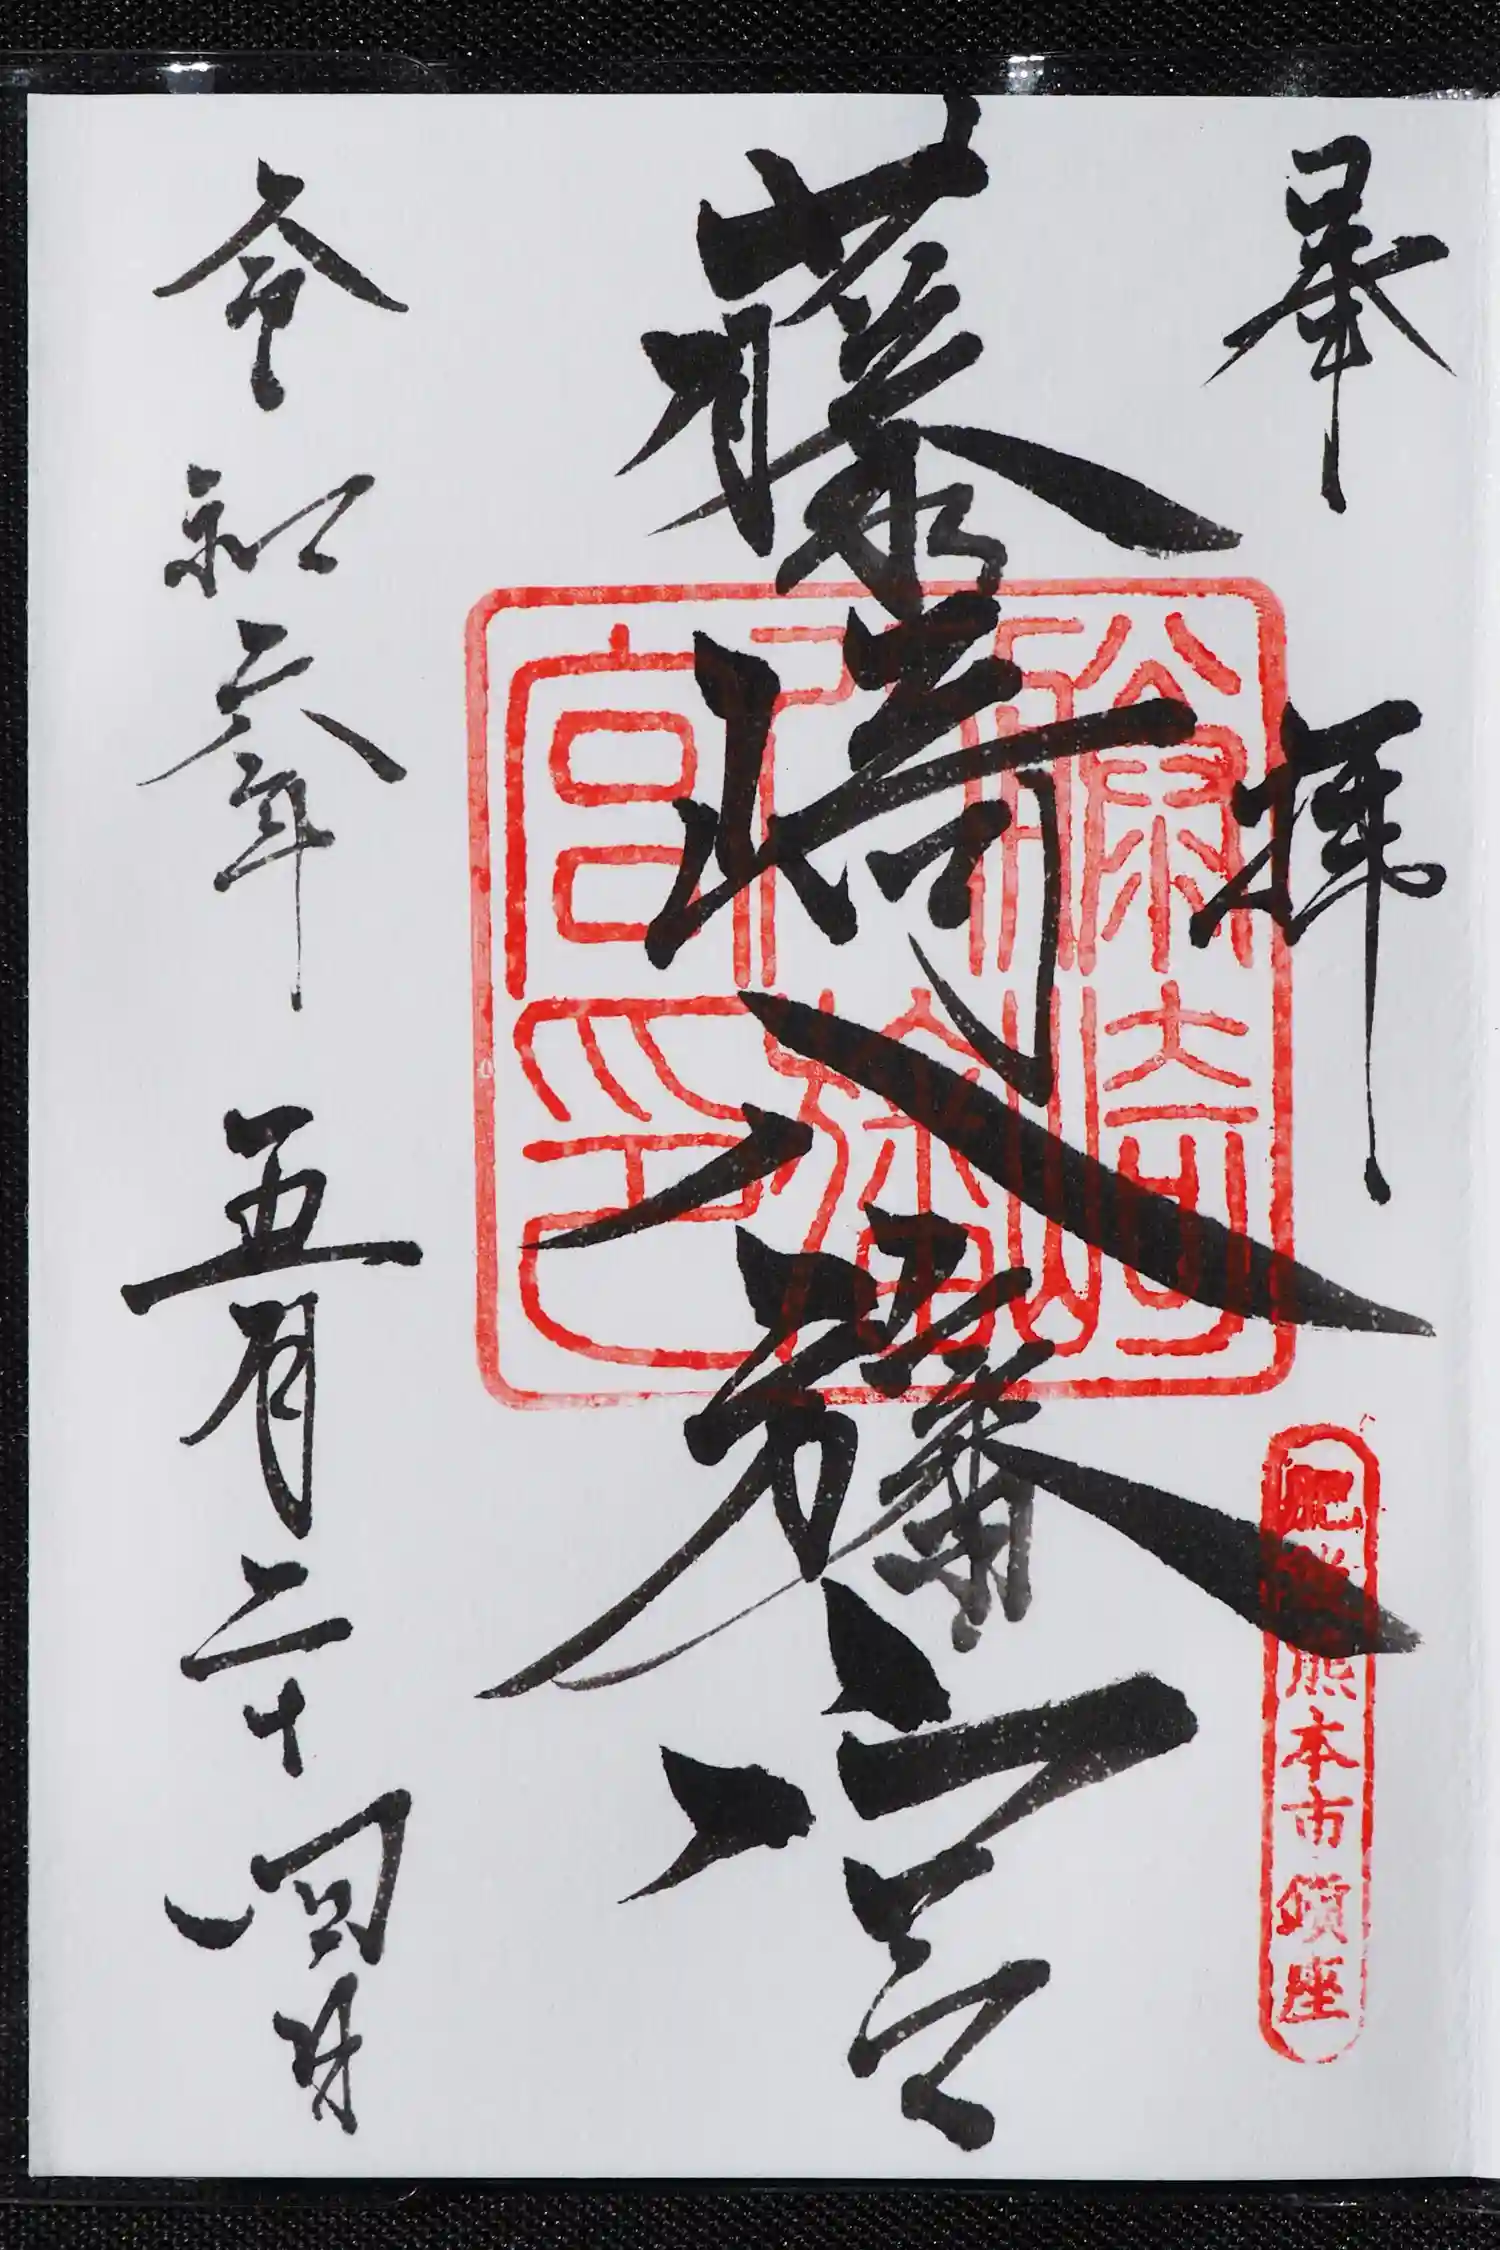 奉拝
藤崎八旛宮
令和六年五月二十四日
藤崎八旛宮印
肥後熊本市鎮座